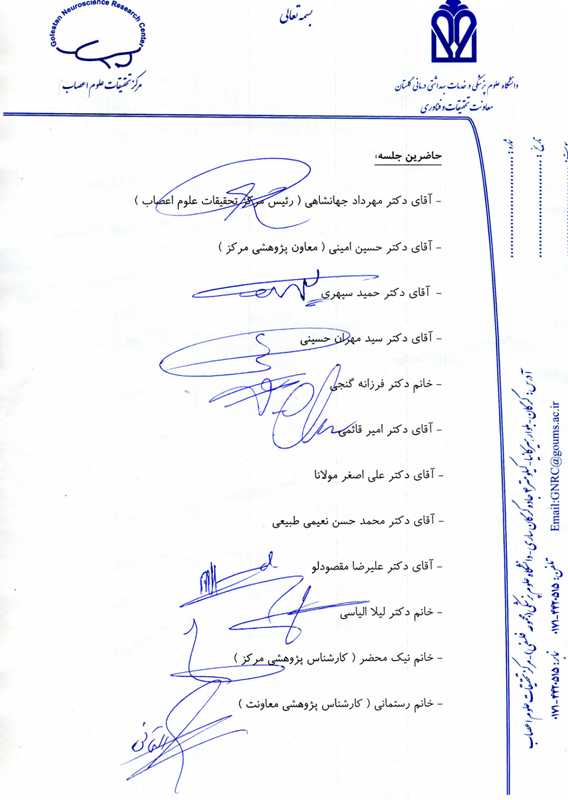 بسمه تعالی
Golestan Neuroscience Research Center
مرکز تحقیقات علوم اعصاب
دانشگاه علوم پزشکی و خدمات بهداشتی درمانی گلستان
معاونت تحقیقات و فناوری
تاریخ :
حاضرین جلسه:
- آقای دکتر مهرداد جهانشاهی ( رئیس مرکز تحقیقات علوم اعصاب )
- آقای دکتر حسین امینی ( معاون پژوهشی مرکز )
- آقای دکتر حمید سپهری
- آقای دکتر سید مهران حسینی
- خانم دکتر فرزانه گنجی
- آقای دکتر امیر قائمی
- آقای دکتر علی اصغر مولانا
- آقای دکتر محمد حسن نعیمی طبیعی
- آقای دکتر علیرضا مقصودلو
- خانم دکتر لیلا الیاسی
- خانم نیک محضر ( کارشناس پژوهشی مرکز )
- خانم رستمانی ( کارشناس پژوهشی معاونت )
Email:GNRC@goums.ac.ir